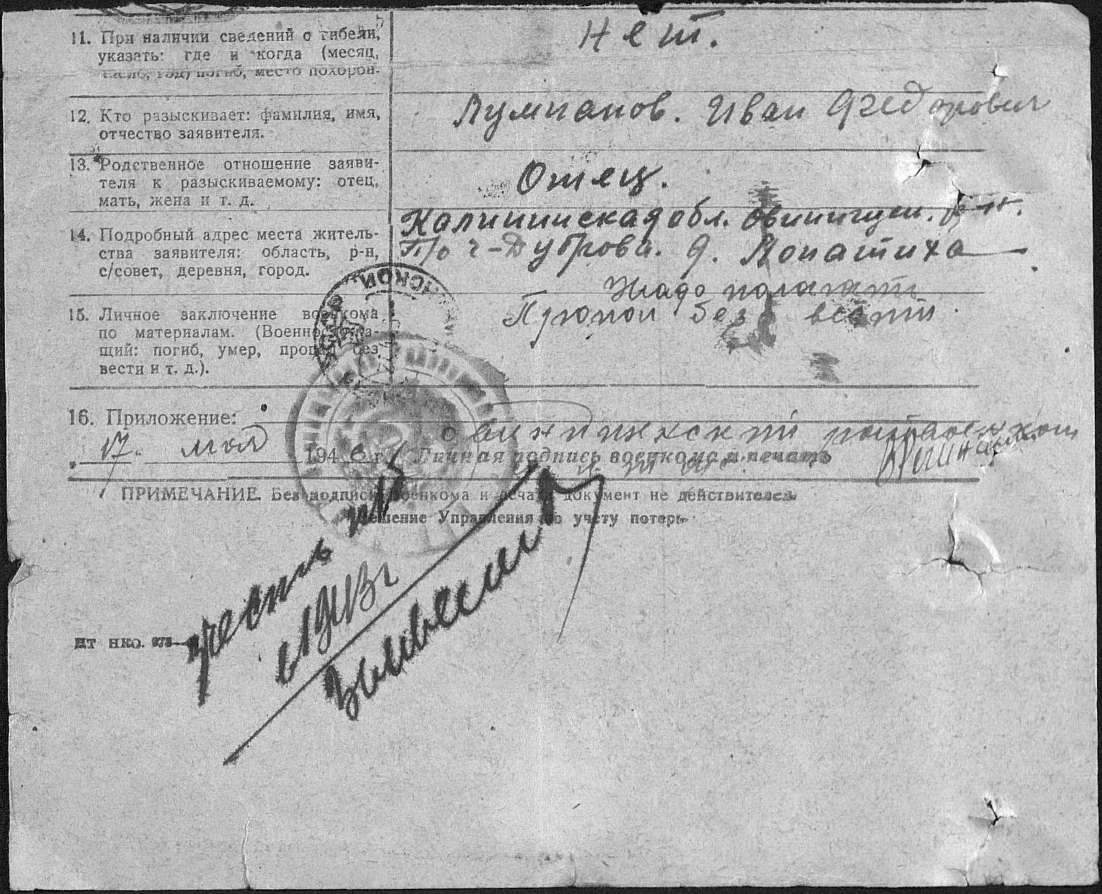 11. При наличии сведений о гибели,
указать: где и когда (месяц,
число, год) погиб, место похорон.
Нет.
12. Кто разыскивает: фамилия, имя,
отчество заявителя.
Лумпанов. Иван Федорович
13. Родственное отношение заяви-
теля к разыскиваемому: отец,
мать, жена и т. д.
Отец.
14. Подробный адрес места житель-
ства заявителя: область, р-н,
с/совет, деревня, город.
Калининская обл.
П/о Ч-Дуброва. д. Лопатиха
15. Личное заключение военкома
по материалам. (Военнослужа-
щий: погиб, умер, пропал без
вести и т. д.).
Надо полагать
Пропал без вести
16. Приложение:
17. мая 1946 г. Личная подпись военкома и печать
ПРИМЕЧАНИЕ. Без подписи военкома и печати документ не действителен.
Решение Управления по учету потерь